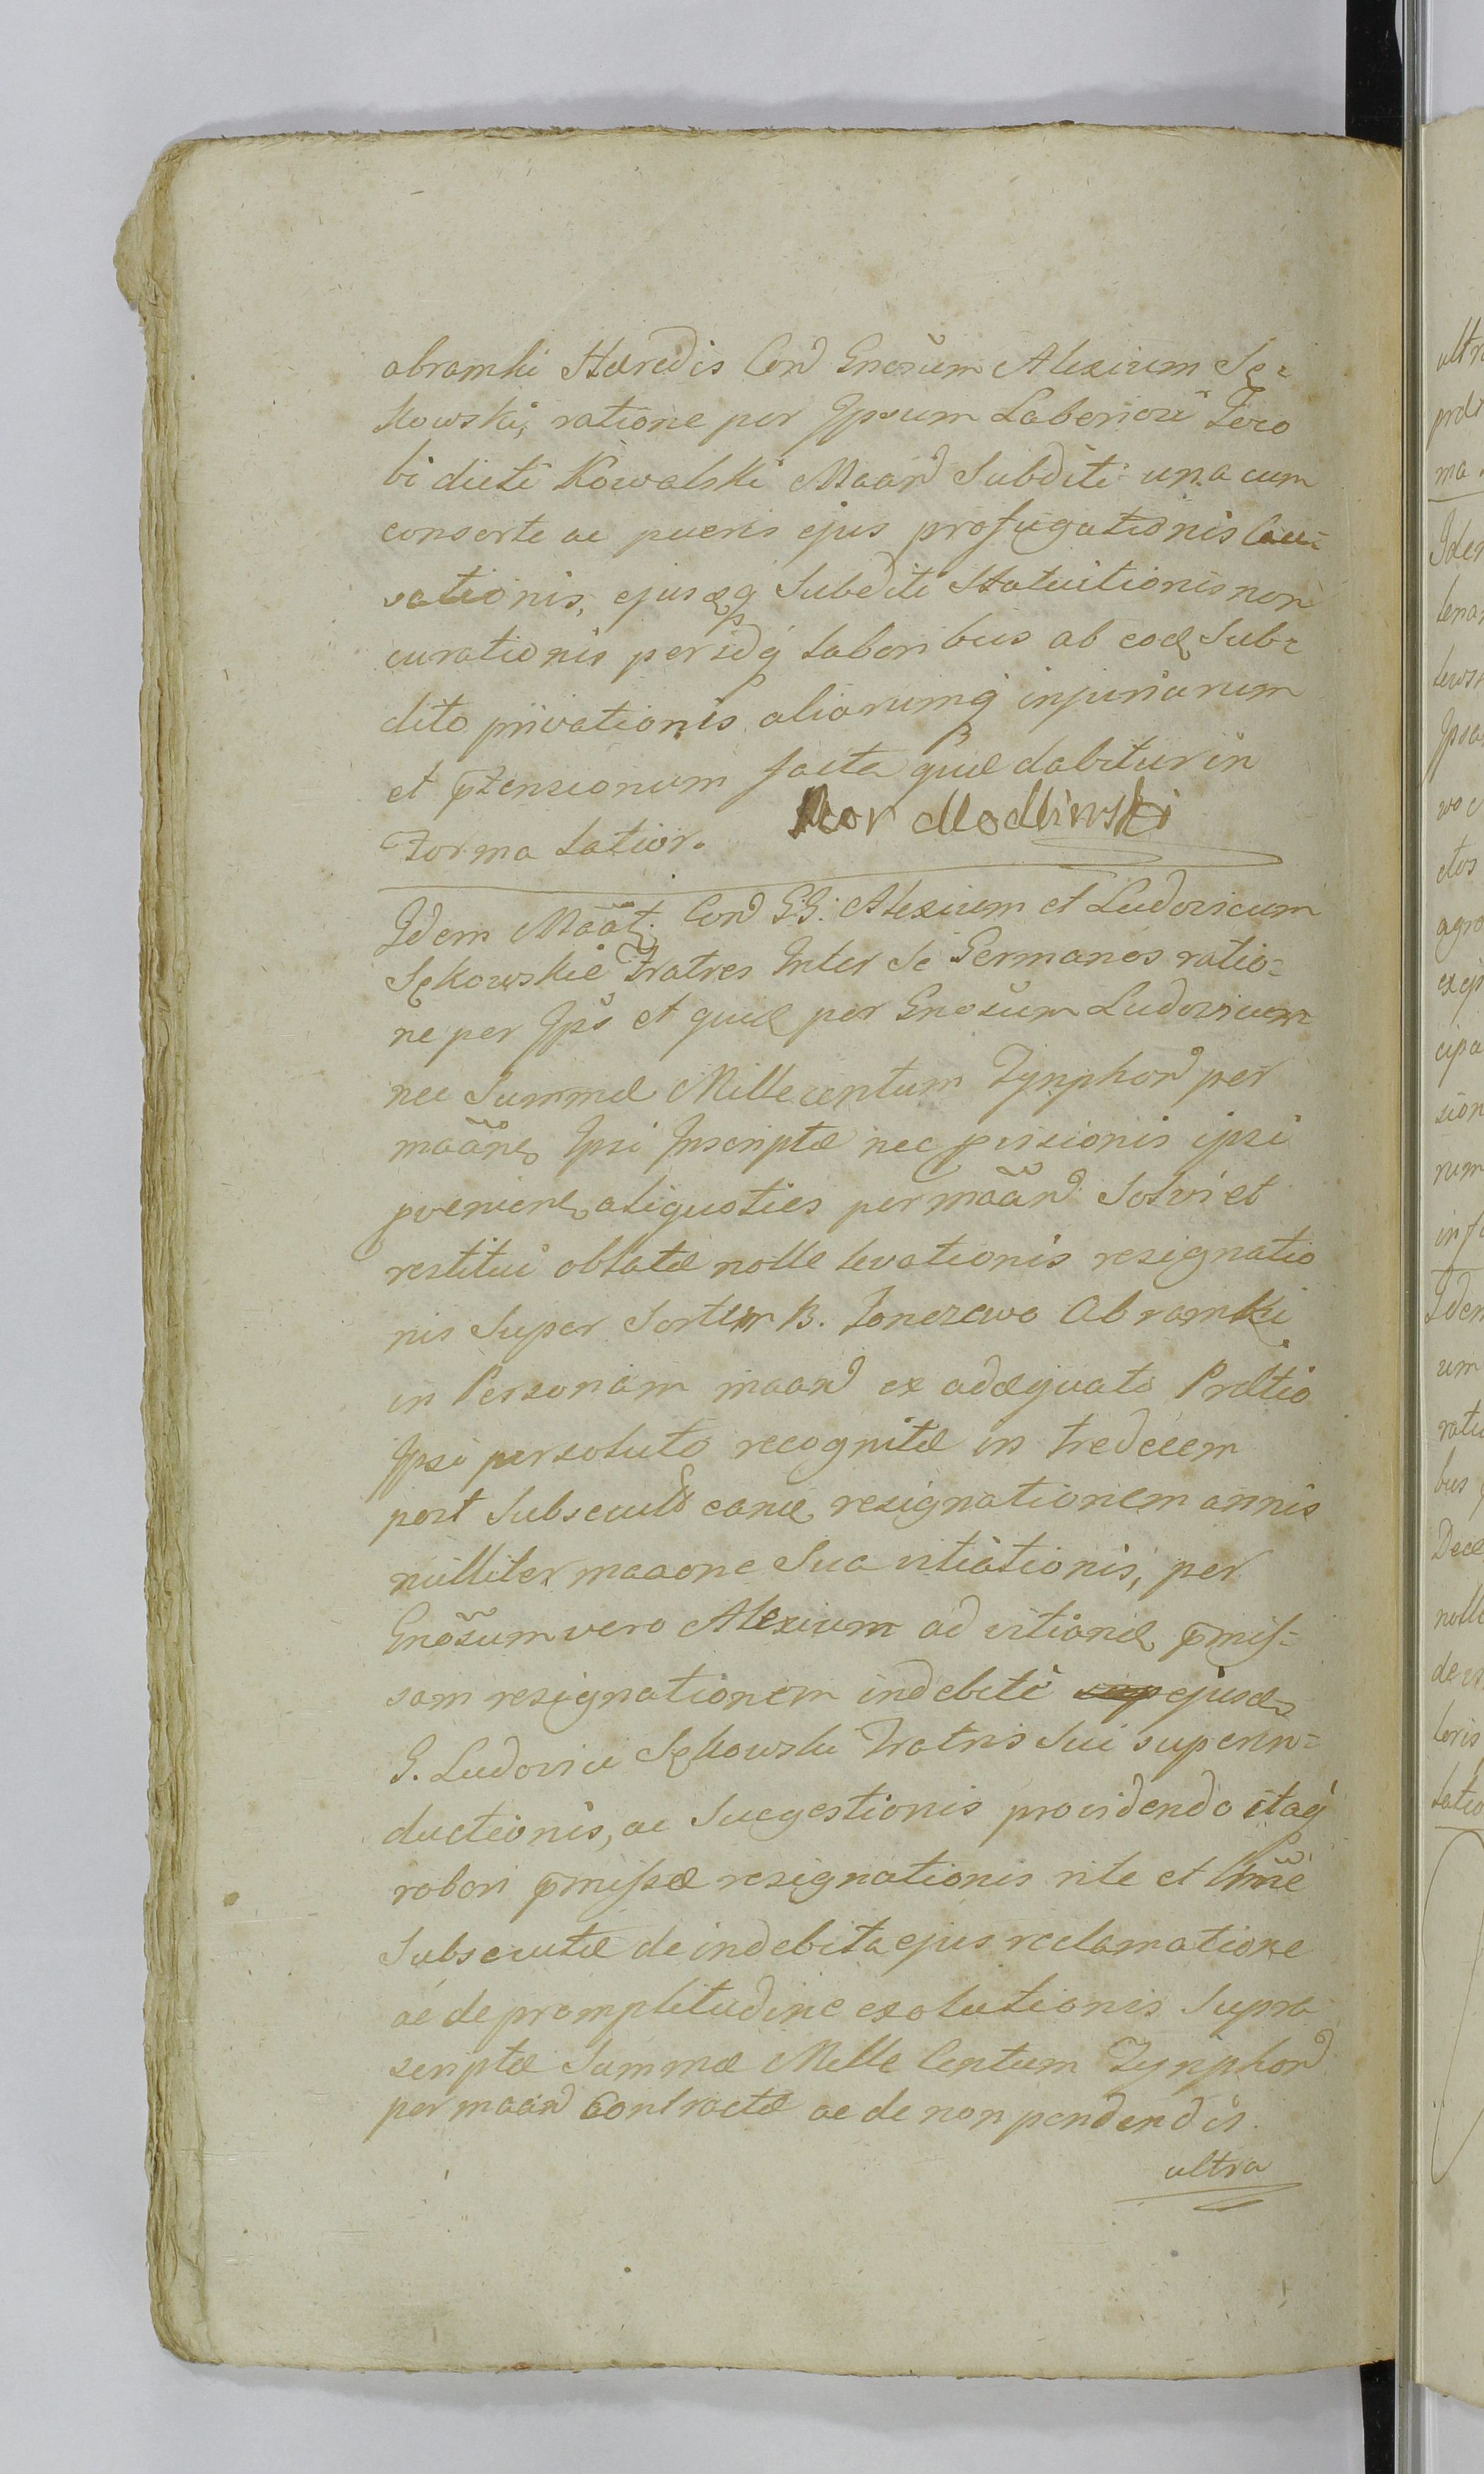 abramki Hæredis Con̄ Gnosum Alexium Sę-
kowski, ratione per Ipsum Laboriosi Jaco
bi dicti Kowalski Maan̄ Subditi una cum
consorte ac pueris ejus profugationis Cau-
sationis, ejusdq Subditi Statuitionis non
curationis perindq laboribus ab eod Sub-
dito privationis aliarumq injuriarum
et ptensionum facta quæ dabitur in
Forma latior. Mor Modlinski
Idem Maat. Con̄ GG: Alexium et Ludovicum
Sękowskie Fratres Inter Se Germanos ratio-
ne per Ips̄ et quid per Gnosum Ludovicum
nec Summæ Mille centum Tynphon̄ per
maan̄ Ipsi Inscriptæ nec pvisionis ipsi
pvenien aliquoties per maan̄ Solvi et
restitui oblatæ nolle levationis resignatio
nis Super Sortem B. Jonczewo Abramki
in Personam maan̄ ex adæquato Prætio
Ipsi persoluto recognitæ in tredecem
post Subsecutā eand resignationem annis
nulliter maaone Sua vitiationis, per
Gnosum vero Alexium ad vitiand pmis-
sam resignationem indebiti ejusd
G. Ludovici Sękowski Fratris Sui superin-
ductionis, ac Sucgestionis providendo itaq
robori pmissæ resignationis rite et ltme
Subsecutæ de indebita ejus reclamatione
ac de promptitudine exolutionis Supra
scriptæ Summæ Mille Centum Tynphon̄
per maan̄ Contractæ ac de non pendendis
ultra